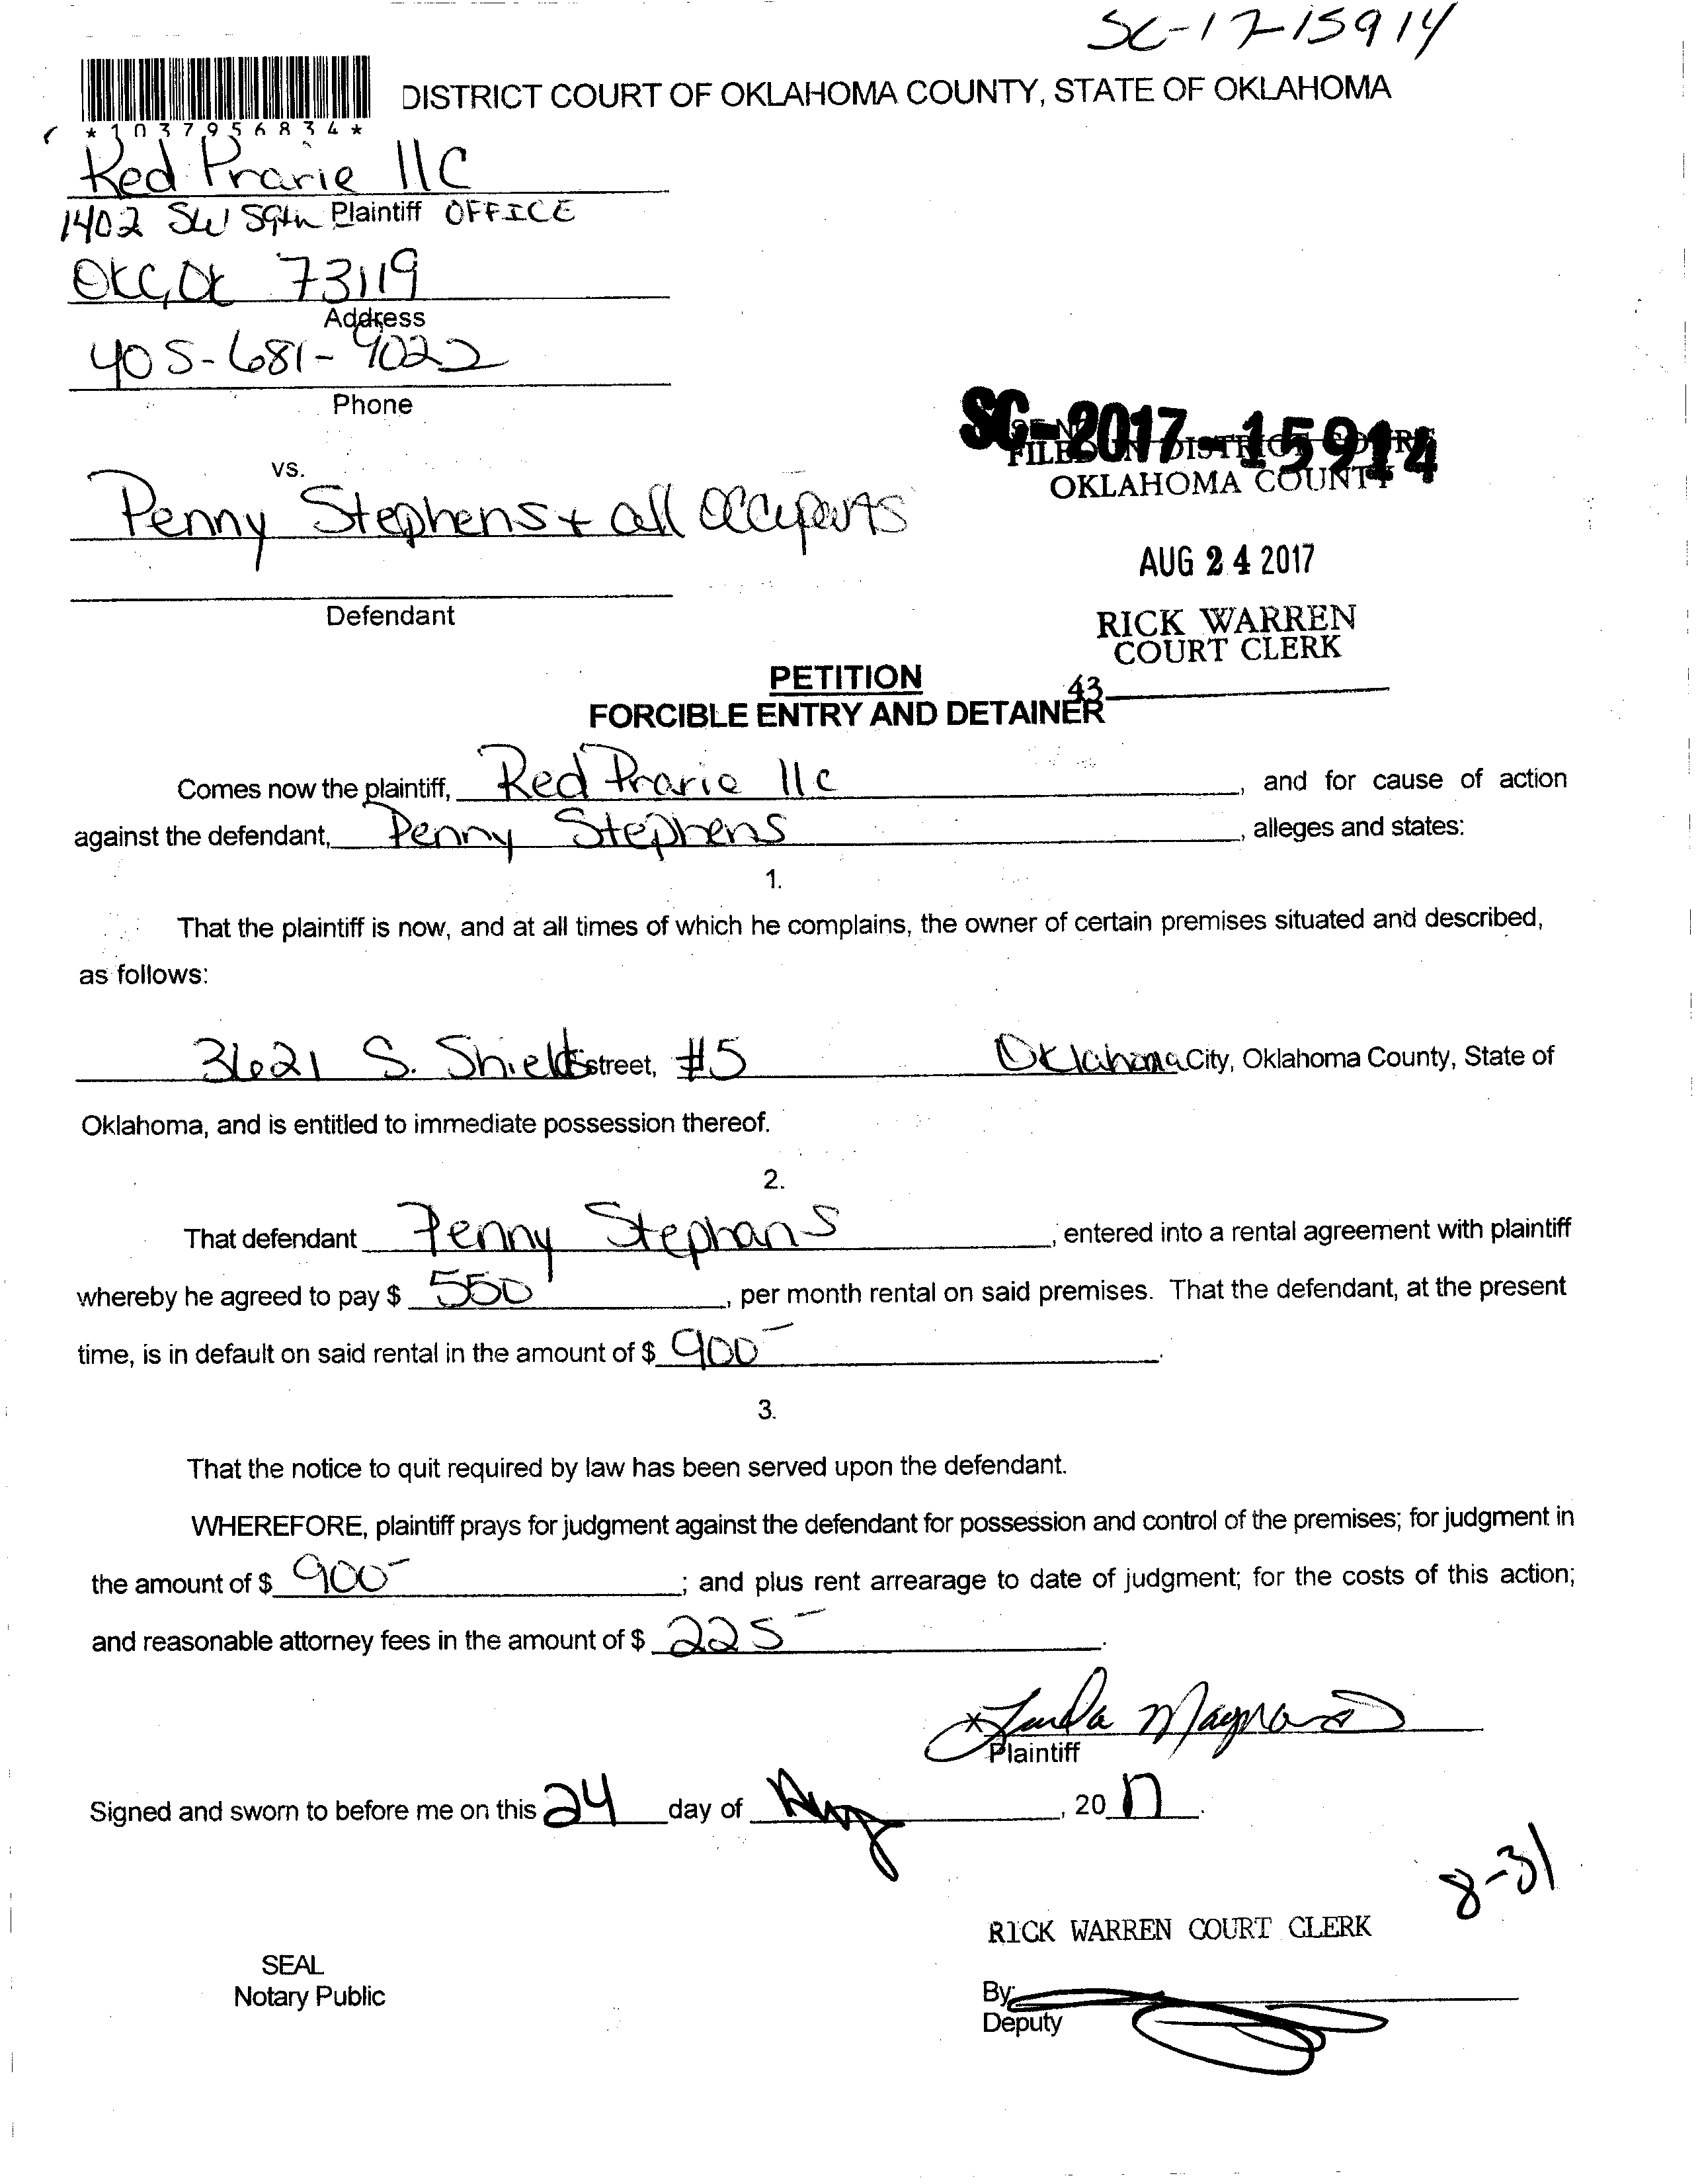 SC-17-15914
DISTRICT COURT OF OKLAHOMA COUNTY, STATE OF OKLAHOMA
*1037956834*
Red Prarie llC
1402 SW 59th Plaintiff OFFICE
OKC, OK 73119
Address
405-681-9022
Phone
SC-2017-15914
FILED IN DISTRICT COURT
OKLAHOMA COUNTY
vs.
Penny Stephens + all occupants
AUG 24 2017
Defendant
RICK WARREN
COURT CLERK
43
PETITION
FORCIBLE ENTRY AND DETAINER
Comes now the plaintiff, Red Prarie llc, and for cause of action
against the defendant, Penny Stephens, alleges and states:
1.
That the plaintiff is now, and at all times of which he complains, the owner of certain premises situated and described,
as follows:
3621 S. Shields street, #5 Oklahoma City, Oklahoma County, State of
Oklahoma, and is entitled to immediate possession thereof.
2.
That defendant Penny Stephans, entered into a rental agreement with plaintiff
whereby he agreed to pay $ 550, per month rental on said premises. That the defendant, at the present
time, is in default on said rental in the amount of $ 900-.
3.
That the notice to quit required by law has been served upon the defendant.
WHEREFORE, plaintiff prays for judgment against the defendant for possession and control of the premises; for judgment in
the amount of $ 900-; and plus rent arrearage to date of judgment; for the costs of this action;
and reasonable attorney fees in the amount of $ 225-.
Linda Maynard
Plaintiff
Signed and sworn to before me on this 24 day of Aug, 20 17.
8-31
RICK WARREN COURT CLERK
SEAL
Notary Public
By:
Deputy